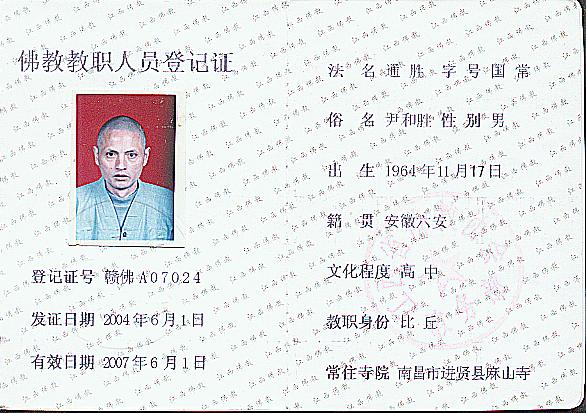 佛教教职人员登记证
登记证号 赣佛A07024
发证日期 2004年6月1日
有效日期 2007年6月1日
法 名 通胜 字号 国常
俗 名 尹和胜 性别 男
出 生 1964年11月17日
籍 贯 安徽六安
文化程度 高中
教职身份 比丘
常住寺院 南昌市进贤县麻山寺